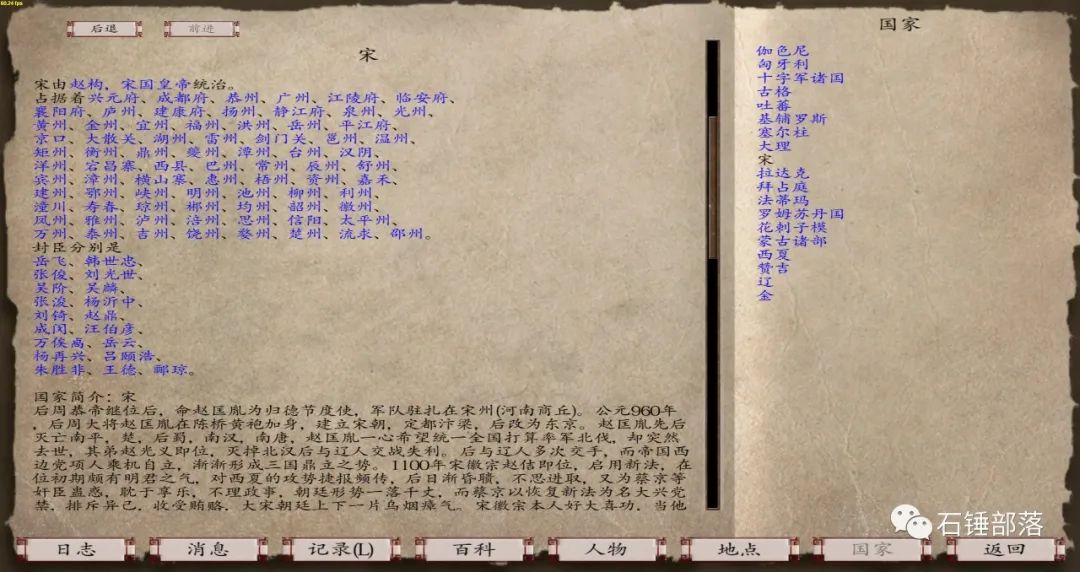 60.24 fps
后退
前进
国家
宋
宋由赵构，宋国皇帝统治。
占据着兴元府、成都府、恭州、广州、江陵府、临安府、
襄阳府、庐州、建康府、扬州、静江府、泉州、光州、
黄州、金州、宜州、福州、洪州、岳州、平江府、
京口、大散关、湖州、雷州、剑门关、邕州、温州、
矩州、衡州、鼎州、夔州、漳州、台州、汉阴、
洋州、宕昌寨、西县、巴州、常州、辰州、舒州、
宾州、漳州、横山寨、惠州、梧州、资州、嘉禾、
建州、鄂州、峡州、明州、池州、柳州、利州、
潼川、寿春、琼州、郴州、均州、韶州、徽州、
凤州、雅州、泸州、涪州、思州、信阳、太平州、
万州、泰州、吉州、饶州、婺州、楚州、流求、邵州。
封臣分别是
岳飞、韩世忠、
张俊、刘光世、
吴阶、吴麟、
张浚、杨沂中、
刘锜、赵鼎、
成闵、汪伯彦、
万俟卨、岳云、
杨再兴、吕颐浩、
朱胜非、王德、郦琼。
国家简介：宋
后周恭帝继位后，命赵匡胤为归德节度使，军队驻扎在宋州(河南商丘)。公元960年
，后周大将赵匡胤在陈桥黄袍加身，建立宋朝，定都汴梁，后改为东京。赵匡胤先后
灭亡南平，楚，后蜀，南汉，南唐，赵匡胤一心希望统一全国打算率军北伐，却突然
去世，其弟赵光义即位，灭掉北汉后与辽人交战失利。后与辽人多次交手，而帝国西
边党项人乘机自立，渐渐形成三国鼎立之势。1100年宋徽宗赵佶即位，启用新法，在
位初期颇有明君之气，对西夏的攻势捷报频传，后日渐昏聩，不思进取，又为蔡京等
奸臣蛊惑，耽于享乐，不理政事，朝廷形势一落千丈，而蔡京以恢复新法为名大兴党
禁，排斥异己，收受贿赂，大宋朝廷上下一片乌烟瘴气。宋徽宗本人好大喜功，当他
伽色尼
匈牙利
十字军诸国
古格
吐蕃
基辅罗斯
塞尔柱
大理
宋
拉达克
拜占庭
法蒂玛
罗姆苏丹国
花剌子模
蒙古诸部
西夏
赞吉
辽
金
石锤部落
日志
消息
记录(L)
百科
人物
地点
国家
返回